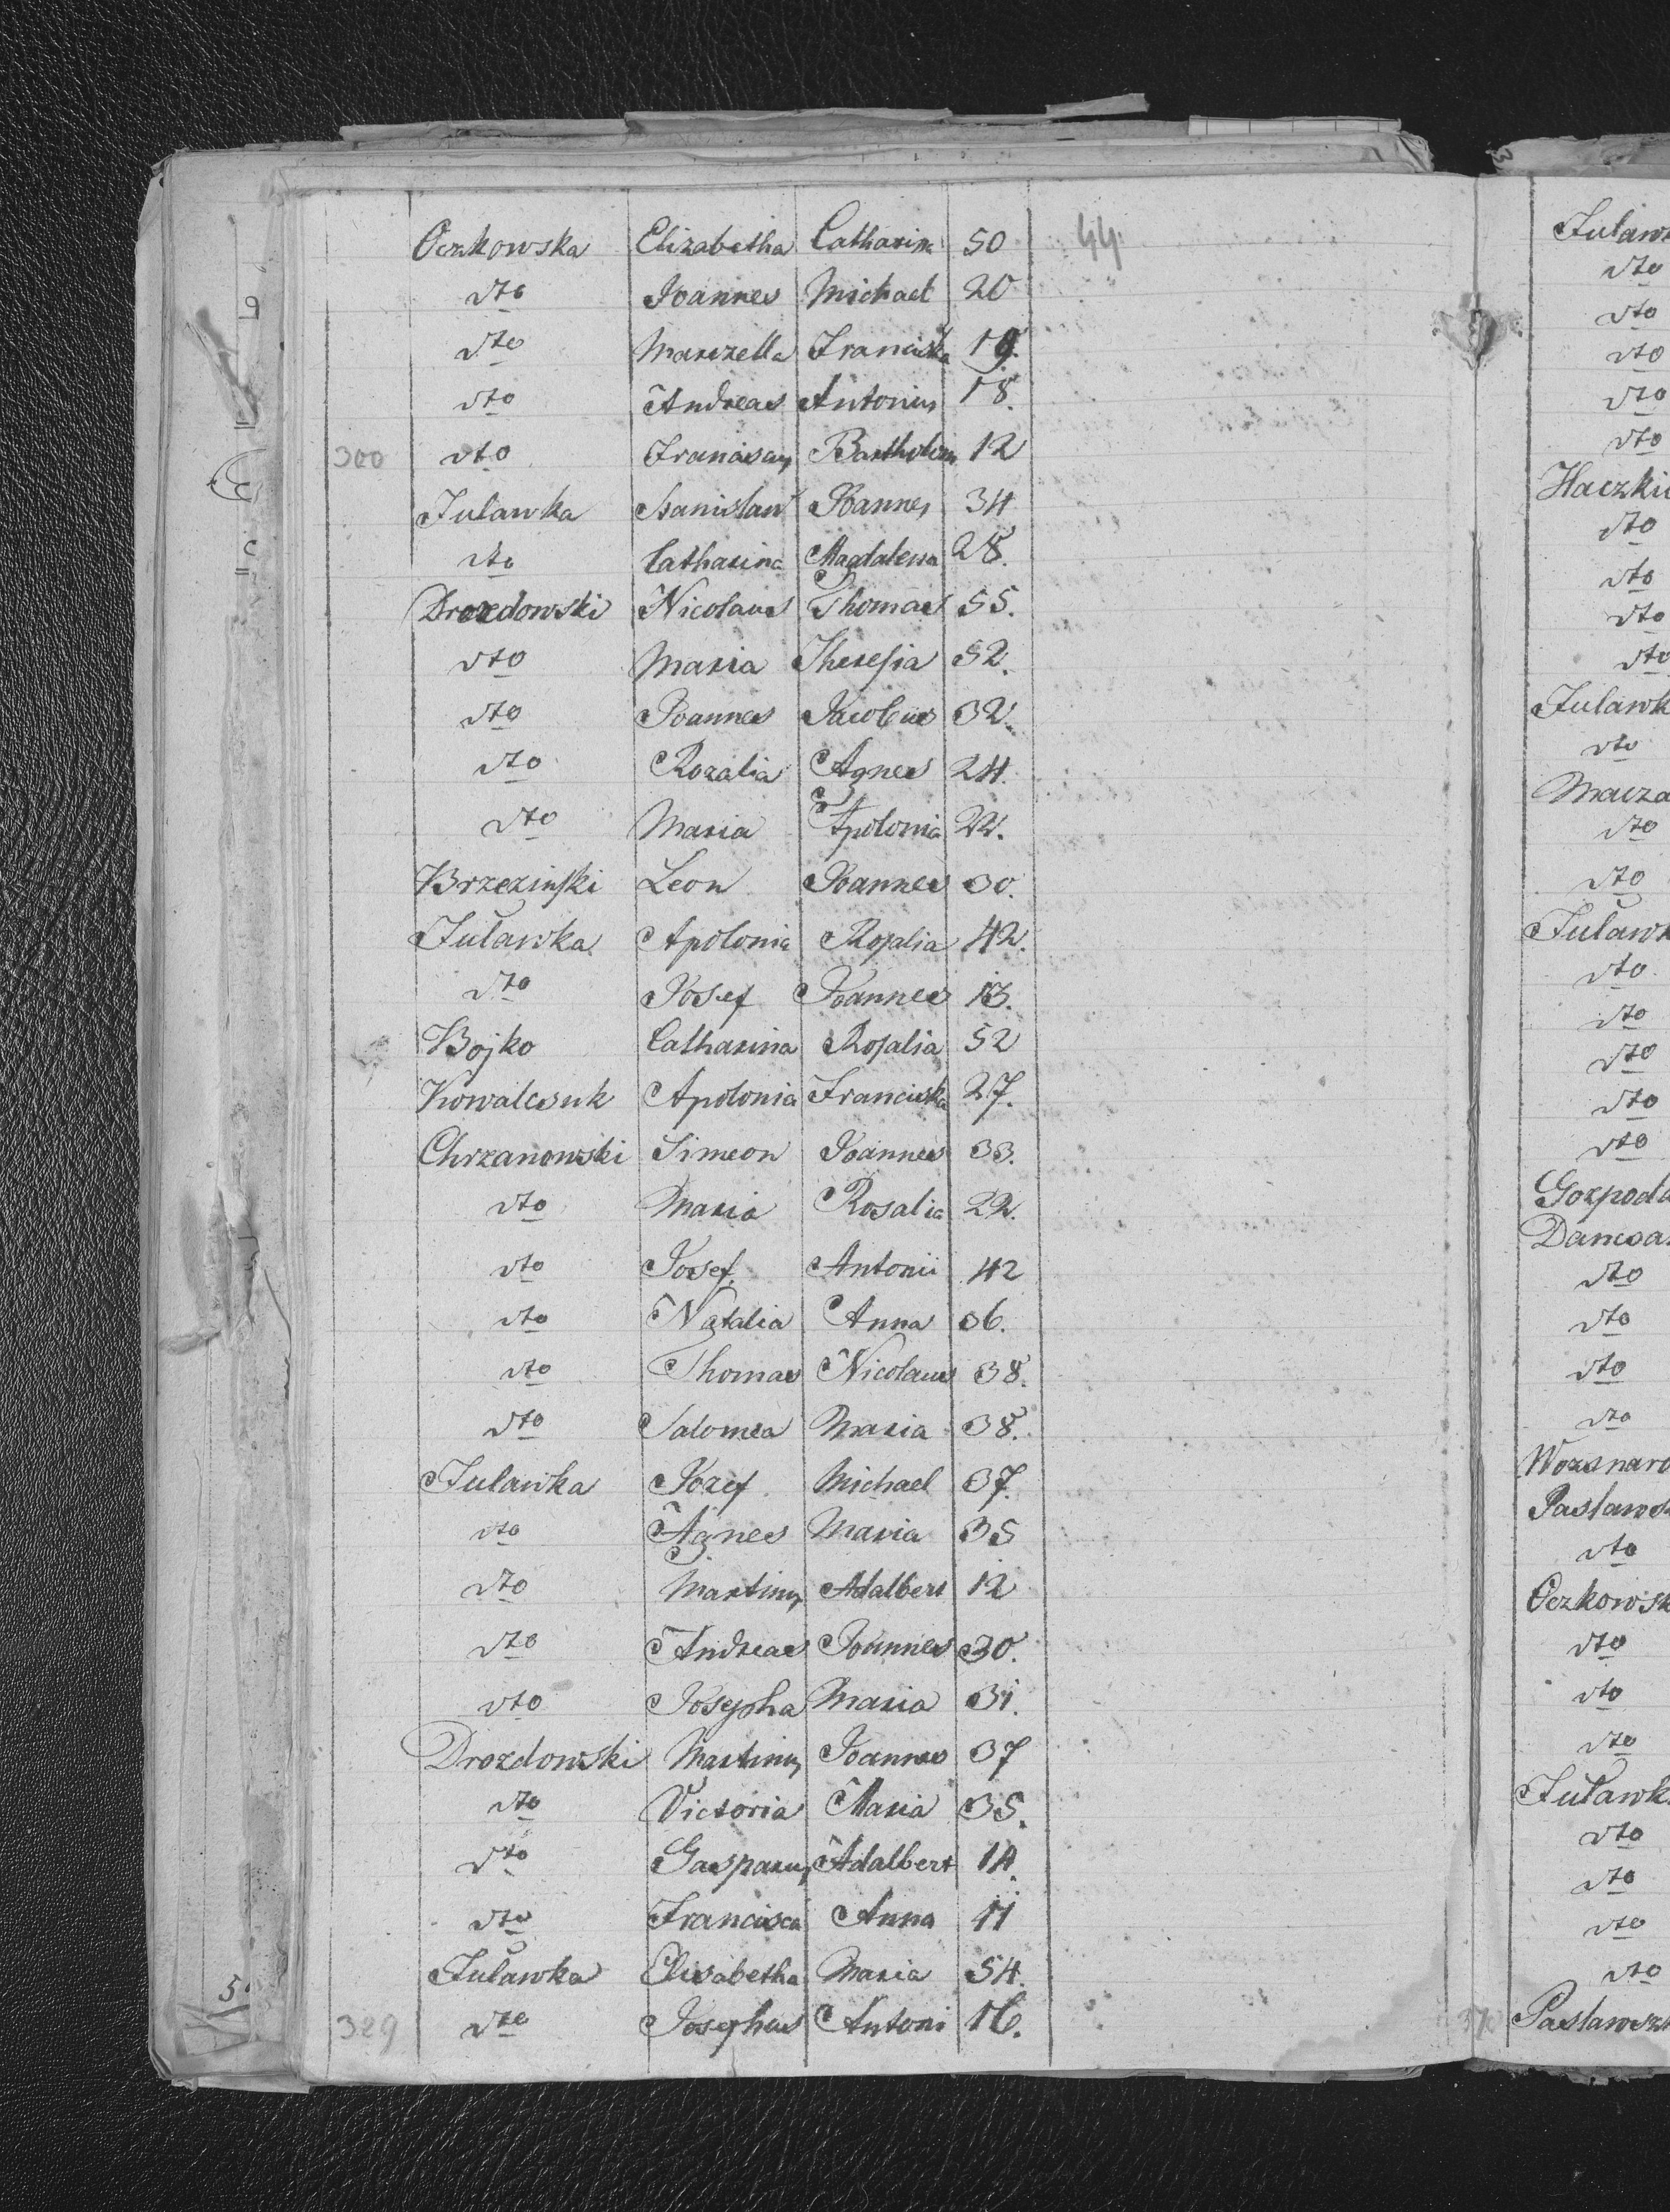 Oczkowska Elizabetha Catharina 50 44
dto Joannes Michael 20
dto Marczella Franciska 19.
dto Andreas Antonius 18.
300 dto Franciscus Bartholom 12
Julawka Stanislaw Joannes 34
dto Catharina Magdalena 28.
Drozdowski Nicolaus Thomas 55.
dto Maria Theresia 52.
dto Joannes Jacobus 32.
dto Rozalia Agnes 24.
dto Maria Apolonia 22.
Brzezinski Leon Joannes 30.
Julawka Apolonia Rosalia 42.
dto Josef Joannes 13.
Bojko Catharina Rosalia 52
Kowalcsuk Apolonia Franciska 27.
Chrzanowski Simeon Joannes 33.
dto Maria Rosalia 22.
dto Josef. Antonii 42
dto Natalia Anna 36.
dto Thomas Nicolaus 38.
dto Salomea Maria 38.
Julawka Jozef Michael 37.
dto Agnes Maria 35
dto Martinus Adalbert 12
dto Andreas Joannes 30.
dto Josepha Maria 31.
Drozdowski Martinus Joannes 37
dto Victoria Maria 35.
dto Gasparus Adalbert 14.
dto Francisca Anna 11
Julawka Elisabetha Maria 54.
329 dto Josephus Antoni 16.
Julawk
dto
dto
dto
dto
dto
Haczki
dto
dto
dto
dto
Julawk
dto
Macza
dto
dto
Julawk
dto
dto
dto
dto
dto
Gozpoda
Damsa
dto
dto
dto
dto
Wozsnaro
Paslaws
dto
Oczkowsk
dto
dto
dto
Julawk
dto
dto
dto
dto
Paslawsz